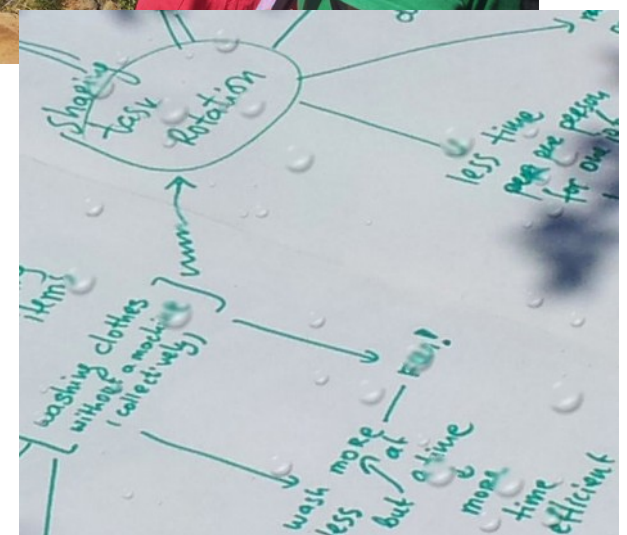 Sharing
task
Rotation
less time
per one person
for one
items
washing clothes
without a machine
(collectively)
FUN!
wash more
less at
but a time
more
time
efficient